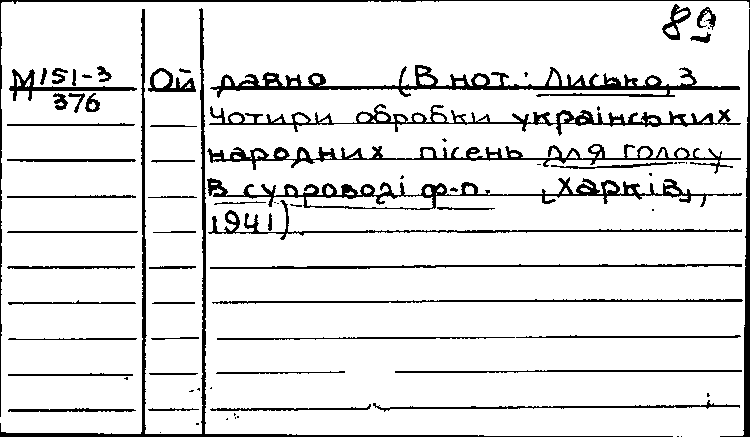 89
М151-3 Ой давно (В нот.: Лисько, З
376
Чотири обробки українських
народних пісень для голосу
в супроводі ф-п. [Харків],
1941)